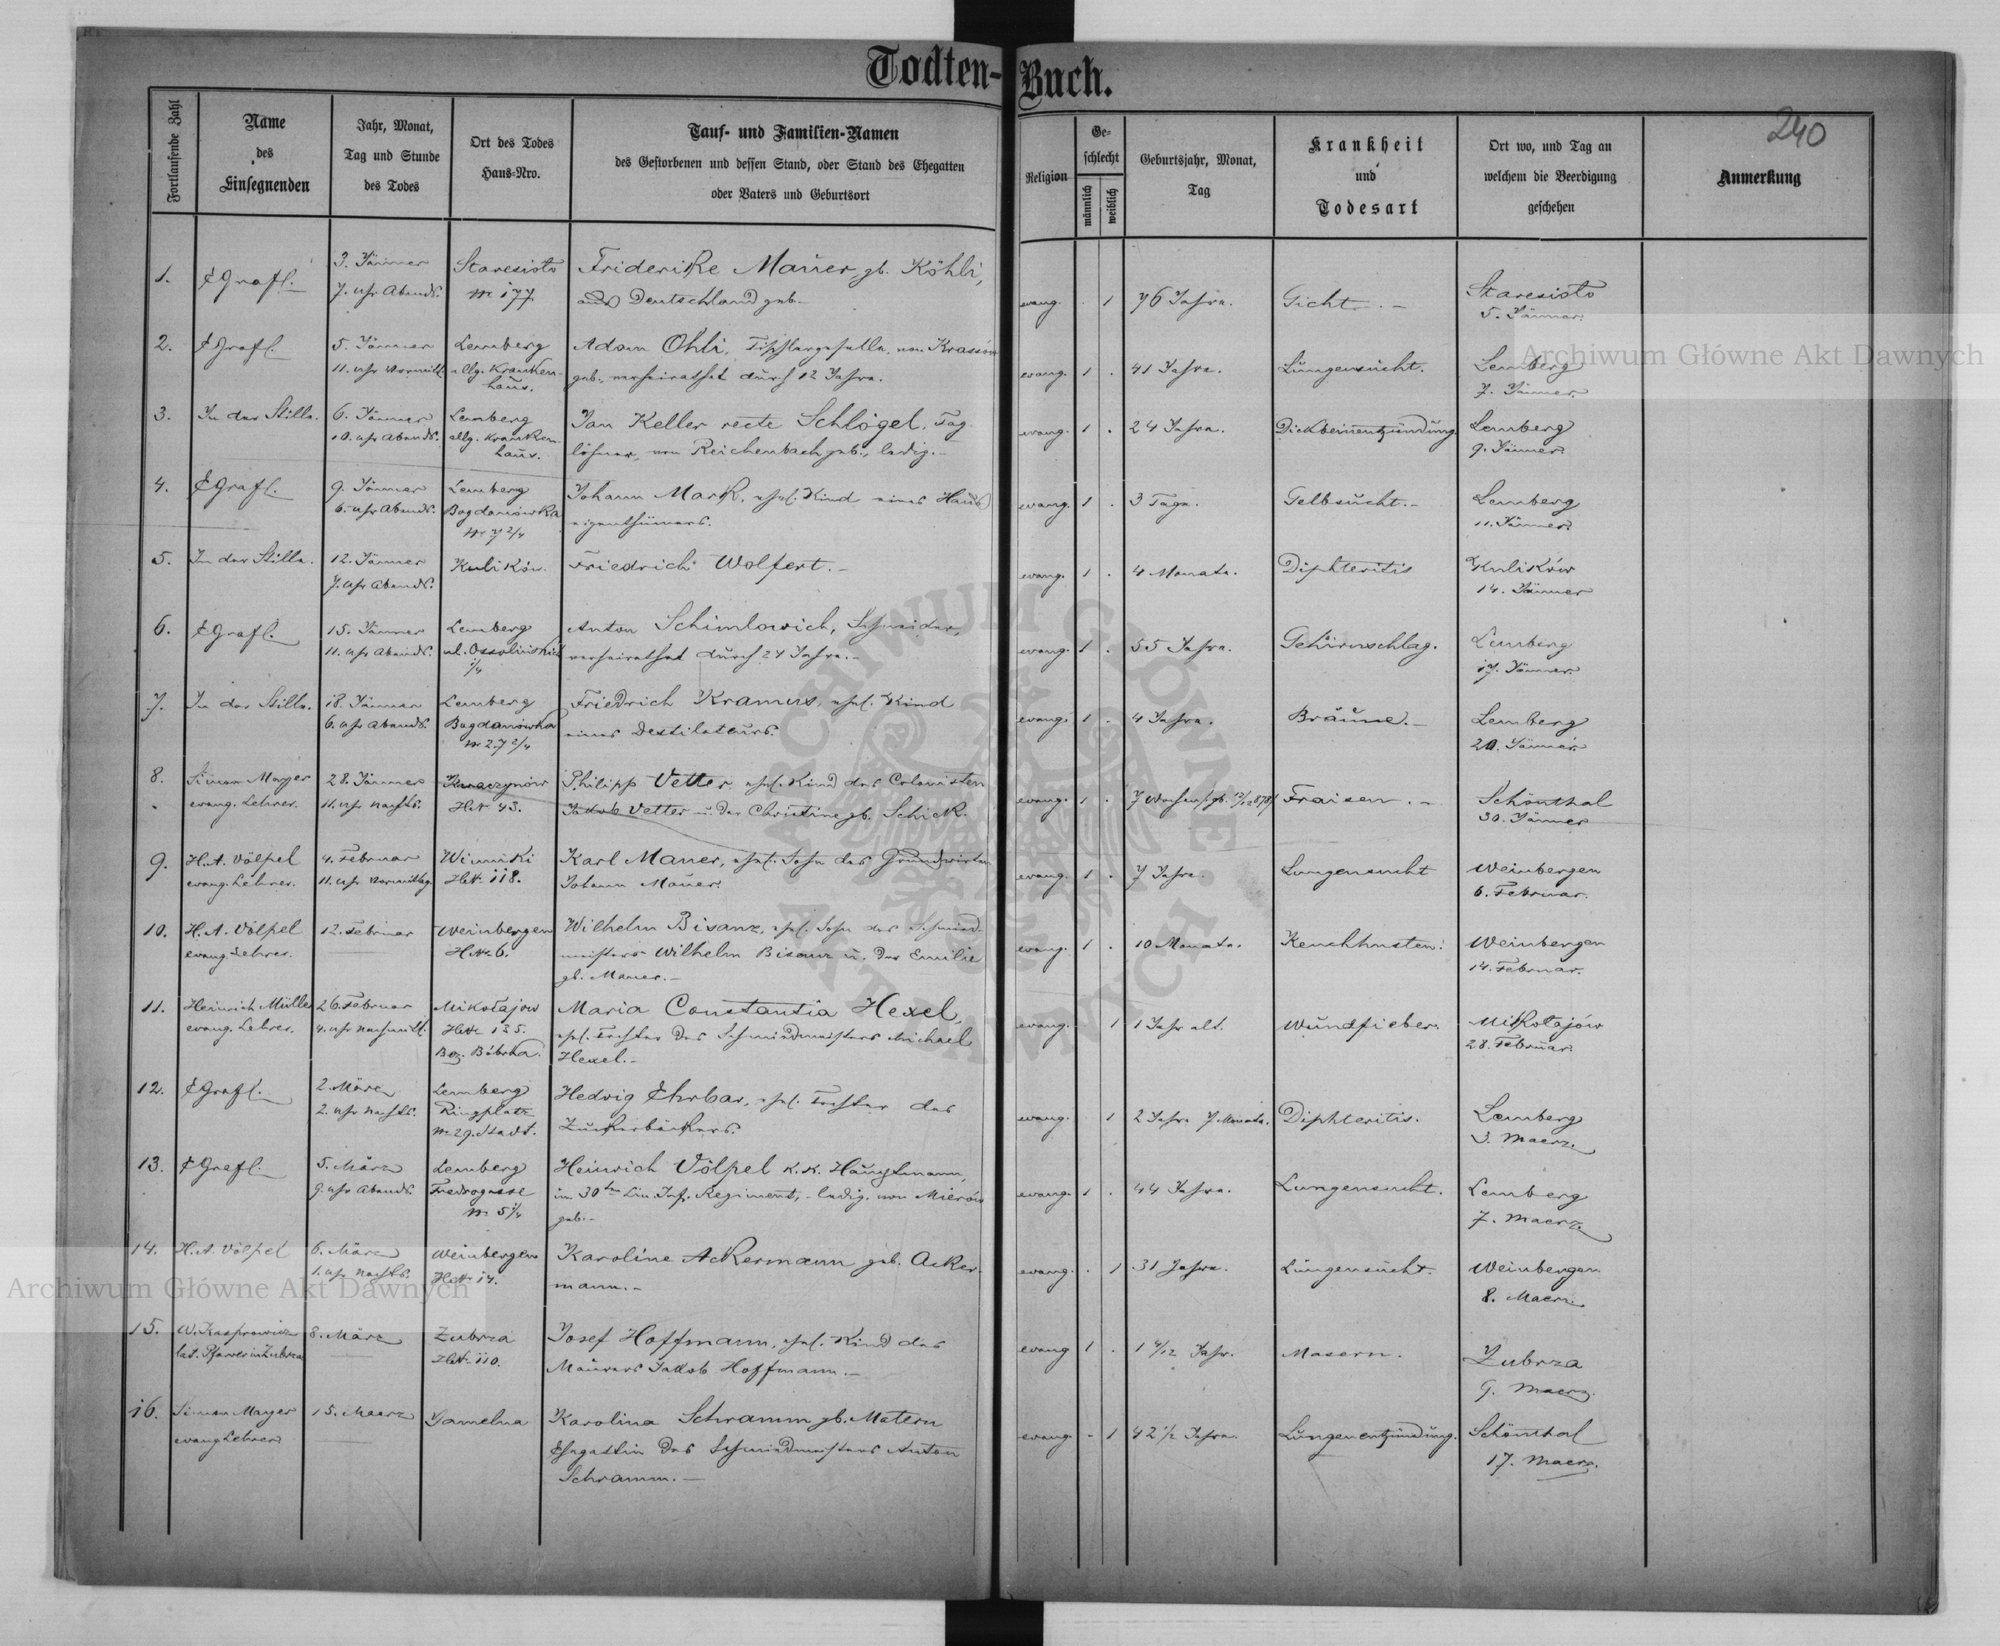 Todten-Buch.
240
Fortlaufende Zahl
Name
des
Einsegnenden
Jahr, Monat,
Tag und Stunde
des Todes
Ort des Todes
Haus-Nro.
Tauf- und Familien-Namen
des Gestorbenen und dessen Stand, oder Stand des Ehegatten
oder Vaters und Geburtsort
Religion
Ge-
schlecht
männlich
weiblich
Geburtsjahr, Monat,
Tag
Krankheit
und
Todesart
Ort wo, und Tag an
welchem die Beerdigung
geschehen
Anmerkung
1.
3. Jänner
7. Uhr Abends.
Staresioło
№ 177
Friderike Mauer, gb. Köhli,
aus Deutschland geb.
evang. . 1
76 Jahre.
Gicht. –
Staresioło
5. Jänner.
2.
5. Jänner
11. Uhr Vormitt.
Lemberg
allg. Kranken-
haus.
Adam Ohli, Tischlergeselle, von
geb., verheirathet durch 12 Jahre.
evang. 1 .
41 Jahre.
Lungensucht.
Lemberg
7. Jänner.
3.
In der Stille.
6. Jänner
10. Uhr Abends.
Lemberg
allg. Kranken-
haus.
Jan Keller recte Schlögel, Tag-
löhner, von Reichenbach geb., ledig. –
evang. 1 .
24 Jahre.
Lemberg
9. Jänner
4.
9. Jänner
6. Uhr Abends.
Lemberg
Bogdanówka
№ 7 2/4
Johann Mark, ehel. Kind eines Haus
eigenthümers.
evang. 1 .
3 Tage.
Gelbsucht. –
Lemberg
11. Jänner.
5.
In der Stille.
12. Jänner
7. Uhr Abends.
Kulików
Friedrich Wolfert. –
evang. 1 .
4 Monate.
Diphteritis
Kulików
14. Jänner
6.
15. Jänner
11. Uhr Abends.
Lemberg
1/4
Anton Schimlowich, Schneider,
verheirathet durch 24 Jahre. –
evang. 1 .
55 Jahre.
Gehirnschlag.
Lemberg
17. Jänner.
7.
In der Stille.
18. Jänner
6. Uhr Abends.
Lemberg
Bogdanówka
№ 27 2/4
Friedrich Kramus, ehel. Kind
eines Destilateurs.
evang. 1 .
4 Jahre.
Bräune. –
Lemberg
20. Jänner.
8.
Simon Mayer
evang. Lehrer.
28. Jänner
11. Uhr Nachts.
H№ 43.
Philipp Vetter, ehel. Kind des Colonisten
Jakob Vetter u. der Christine gb. Schick.
evang. 1 .
7 Wochen
Fraisen. –
Schönthal
30. Jänner
9.
H.A. Völpel
evang. Lehrer.
4. Februar
11. Uhr Vormittag.
Winniki
H№ 118.
Karl Mauer, ehel. Sohn des Grundwirten
Johann Mauer.
evang. 1 .
7 Jahre.
Lungensucht
Weinbergen
6. Februar.
10.
H.A. Völpel
evang. Lehrer.
12. Februar
Weinbergen
H№ 6.
Wilhelm Bisanz, ehel. Sohn des Schmied-
meisters Wilhelm Bisanz u. der Emilie
gb. Mauer. –
evang. 1 .
10 Monate.
Keuchhusten.
Weinbergen
14. Februar.
11.
Heinrich Müller
evang. Lehrer.
26. Februar
4. Uhr Nachmitt.
Mikołajow
H№ 135.
Bez. Bóbrka.
Maria Constantia Hexel,
ehel. Tochter des Schmiedmeisters Michael
Hexel. –
evang. 1
1 Jahr alt.
Wundfieber.
Mikołajów
28. Februar.
12.
2. März
2. Uhr Nachts.
Lemberg
Ringplatz
№ 29. Stadt.
Hedwig Ehrbar, ehel. Tochter des
Zuckerbäckers.
evang. 1
2 Jahre 7 Monate.
Diphteritis.
Lemberg
3. Maerz
13.
5. März
9. Uhr Abends.
Lemberg
Fredrogasse
№ 5 1/4
Heinrich Völpel k.k. Hauptmann,
im 30ten Lin. Inf. Regiment, ledig, von Mierów
geb. –
evang. 1 .
44 Jahre.
Lungensucht.
Lemberg
7. Maerz
14.
H.A. Völpel
6. März
1. Uhr Nachts.
Weinbergen
H№ 14.
Karoline Ackermann geb. Acker-
mann. –
evang. . 1
31 Jahre.
Lungensucht.
Weinbergen
8. Maerz
15.
W. Kasprowicz
lat. Pfarrer in Zubrza
8. März
Zubrza
H№ 110.
Josef Hoffmann, ehel. Kind des
Maurers Jakob Hoffmann. –
evang 1 .
Masern.
Zubrza
9. Maerz.
16.
Simon Mayer
evang Lehrer
15. Maerz
Jamelna
Karolina Schramm gb. Matern
Ehegattin des Schmiedmeisters Anton
Schramm. –
evang. - 1
42 1/2 Jahre.
Lungenentzündung.
Schönthal
17. Maerz.
Archiwum Główne Akt Dawnych
Archiwum Główne Akt Dawnych
ARCHIWUM GŁÓWNE AKT DAWNYCH